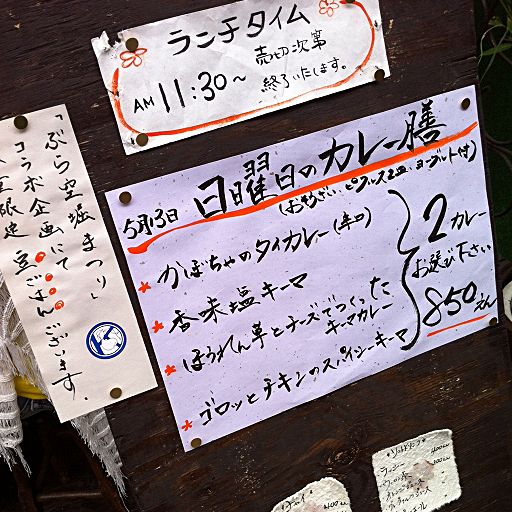 ランチタイム
AM 11:30〜
売切次第
終了いたします。
5月13日 日曜日のカレー膳
(お惣ざい、ピクルス2皿、ヨーグルト付)
* かぼちゃのタイカレー(辛口)
* 香味塩キーマ
* ほうれん草とチーズでつくった
キーマカレー
* ゴロッとチキンのスパイシーキーマ
2カレー
お選び下さい
850えん
「ぶら空堀まつり」
コラボ企画にて
豆ごはんございます。